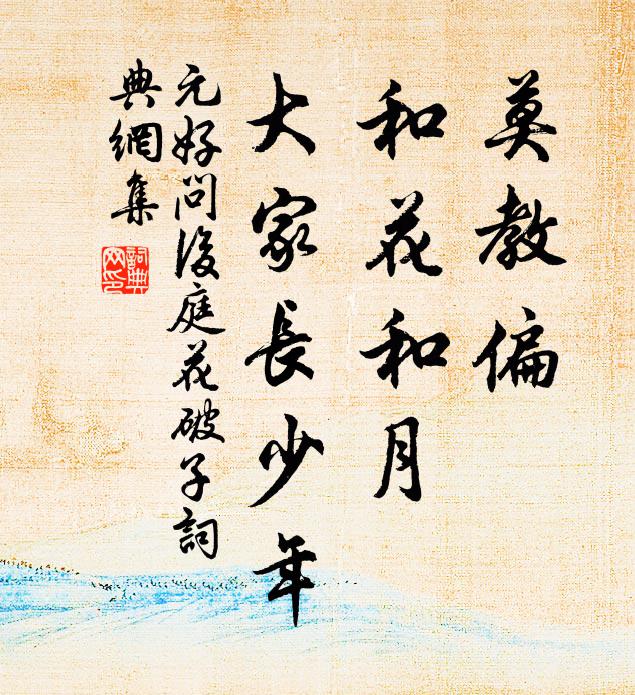 莫教偏
和花和月
大家長少年
元好問後庭花破子詞
典網集
詞典網印